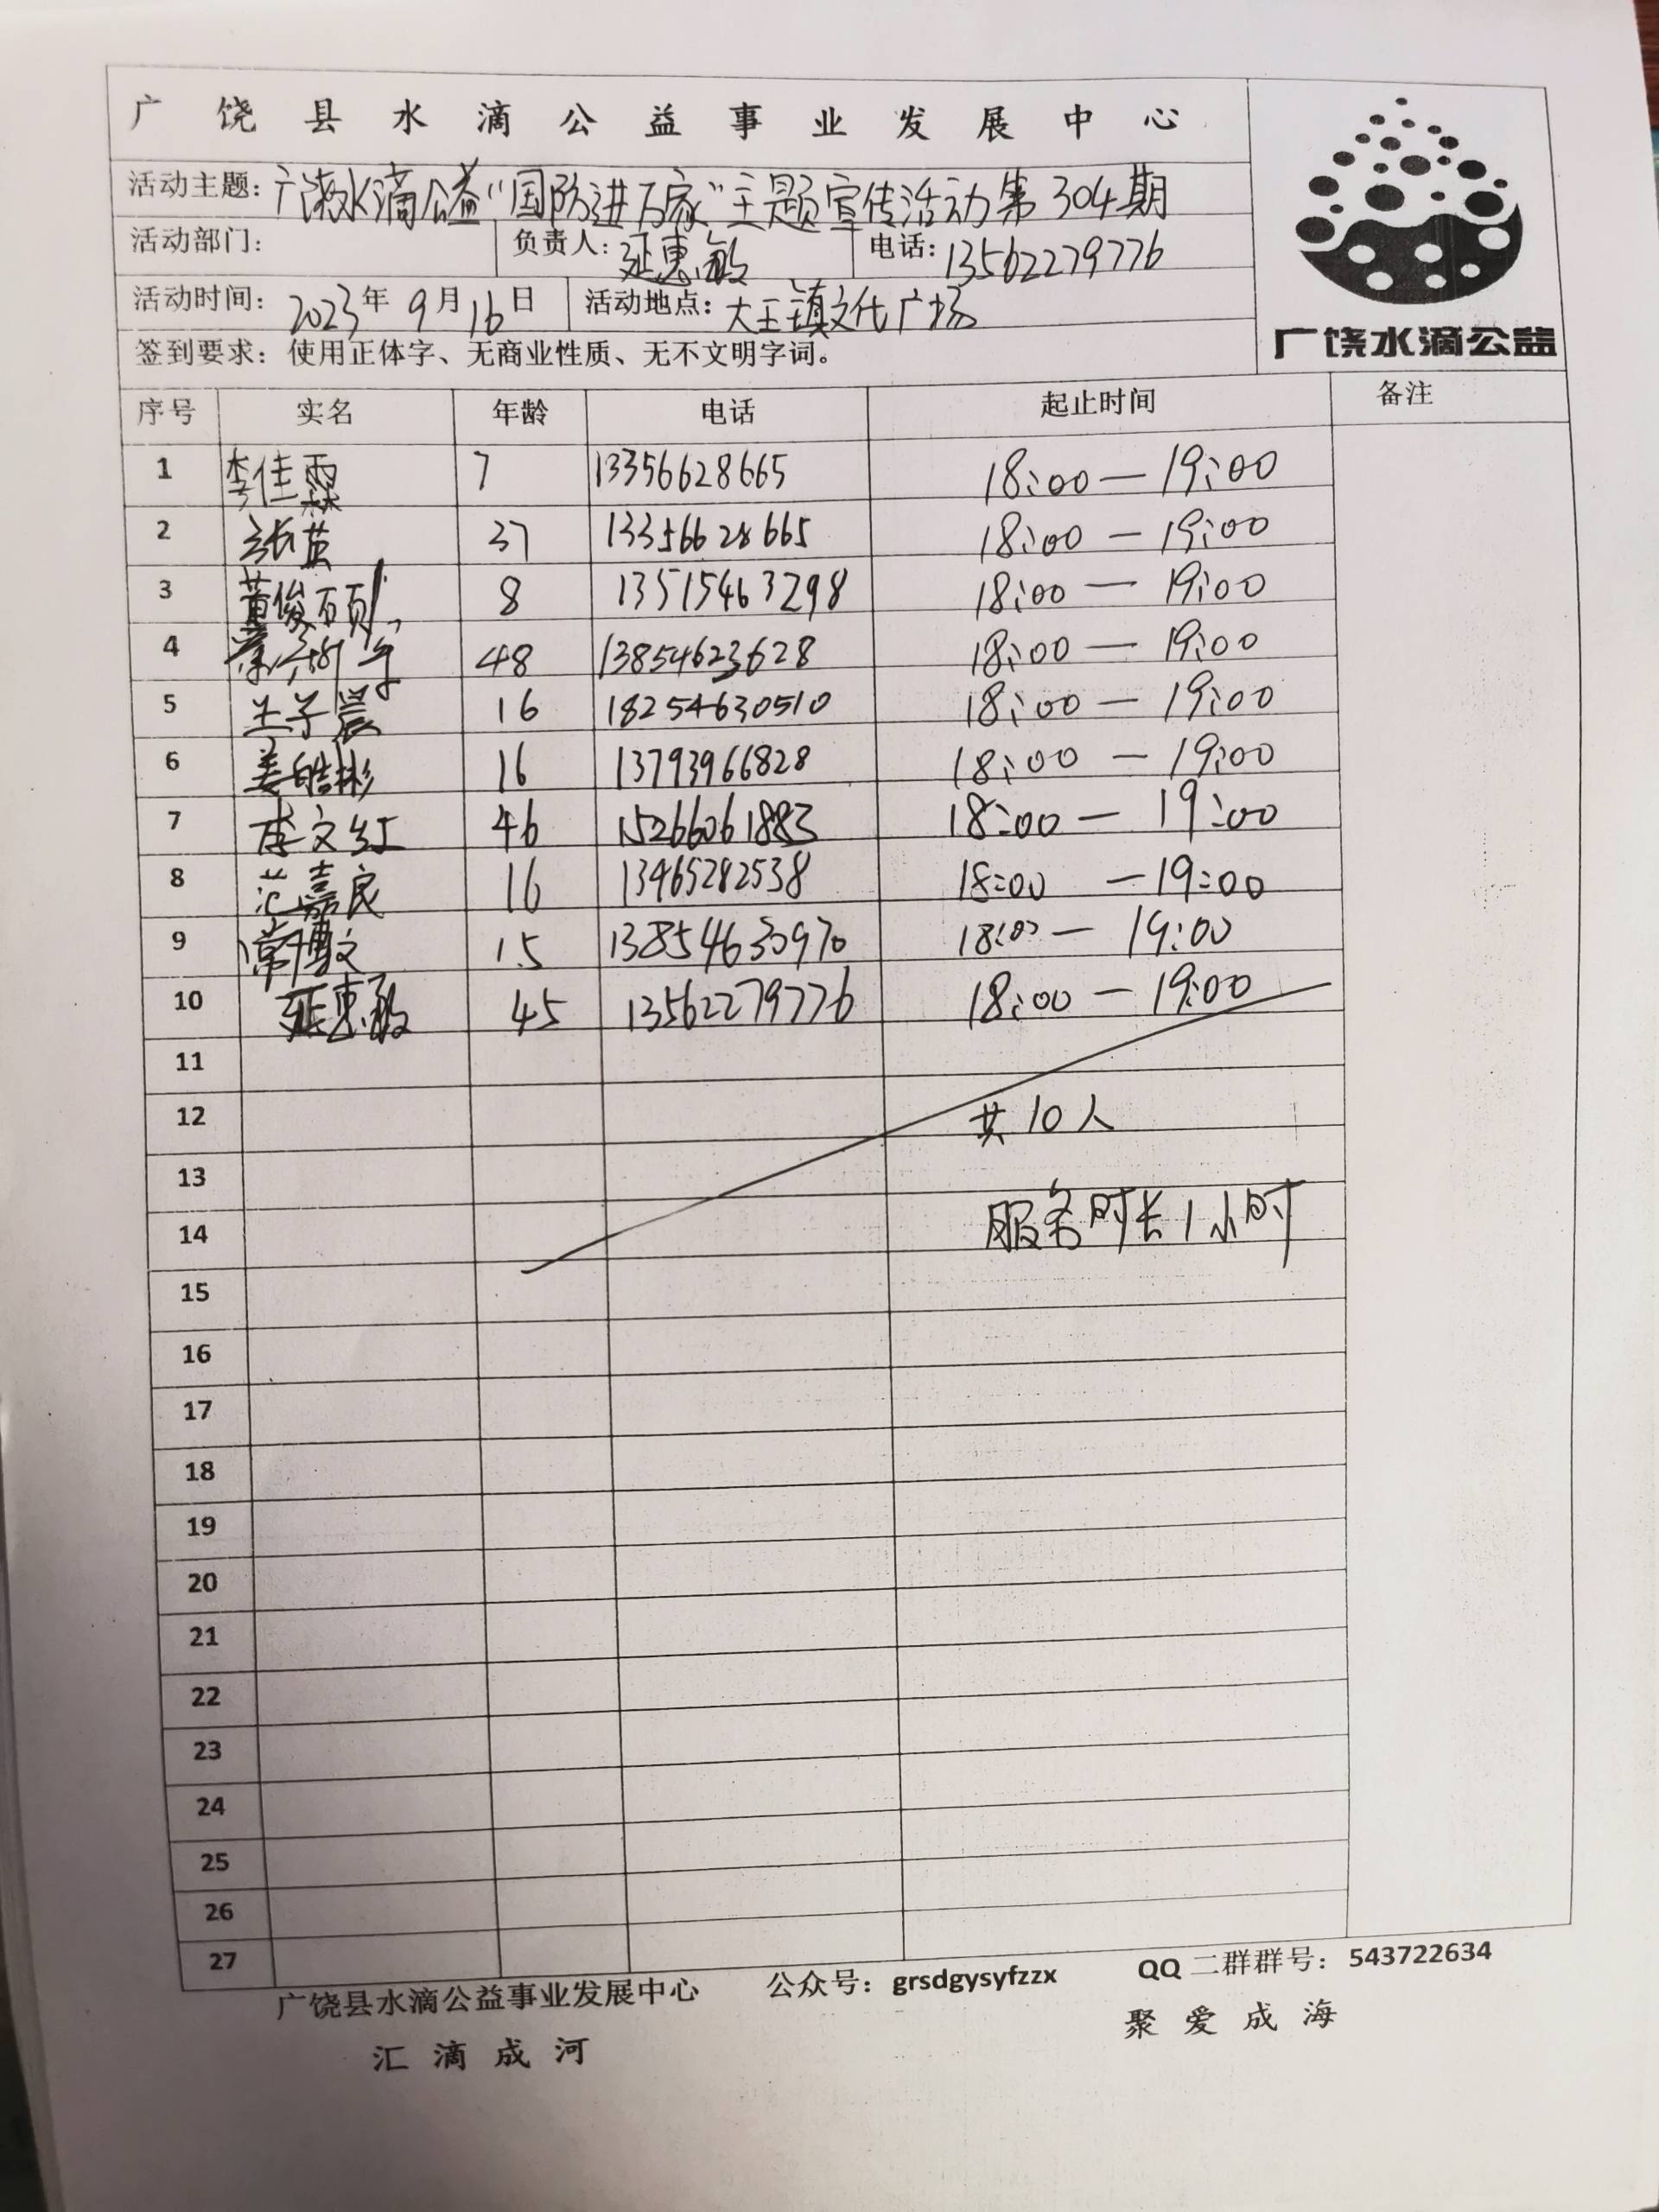 广饶县水滴公益事业发展中心
活动主题：广饶水滴公益“国防进万家”主题宣传活动第304期
活动部门： 负责人：延惠敏 电话：13562279776
活动时间：2023年9月16日 活动地点：大王镇文化广场
签到要求：使用正体字、无商业性质、无不文明字词。
广饶水滴公益
序号 实名 年龄 电话 起止时间 备注
1 李佳霖 7 13356628665 18:00—19:00
2 张英 37 13356628665 18:00—19:00
3 黄俊硕 8 13515463298 18:00—19:00
4 48 13854623628 18:00—19:00
5 王子晨 16 18254630510 18:00—19:00
6 姜皓彬 16 13793966828 18:00—19:00
7 李文红 46 15266061883 18:00—19:00
8 范嘉良 16 13465282538 18:00—19:00
9 常博文 15 13854630970 18:00—19:00
10 延惠敏 45 13562279776 18:00—19:00
11
12 共10人
13
14 服务时长1小时
15
16
17
18
19
20
21
22
23
24
25
26
27
广饶县水滴公益事业发展中心 公众号：grsdgysyfzzx QQ二群群号：543722634
汇滴成河 聚爱成海